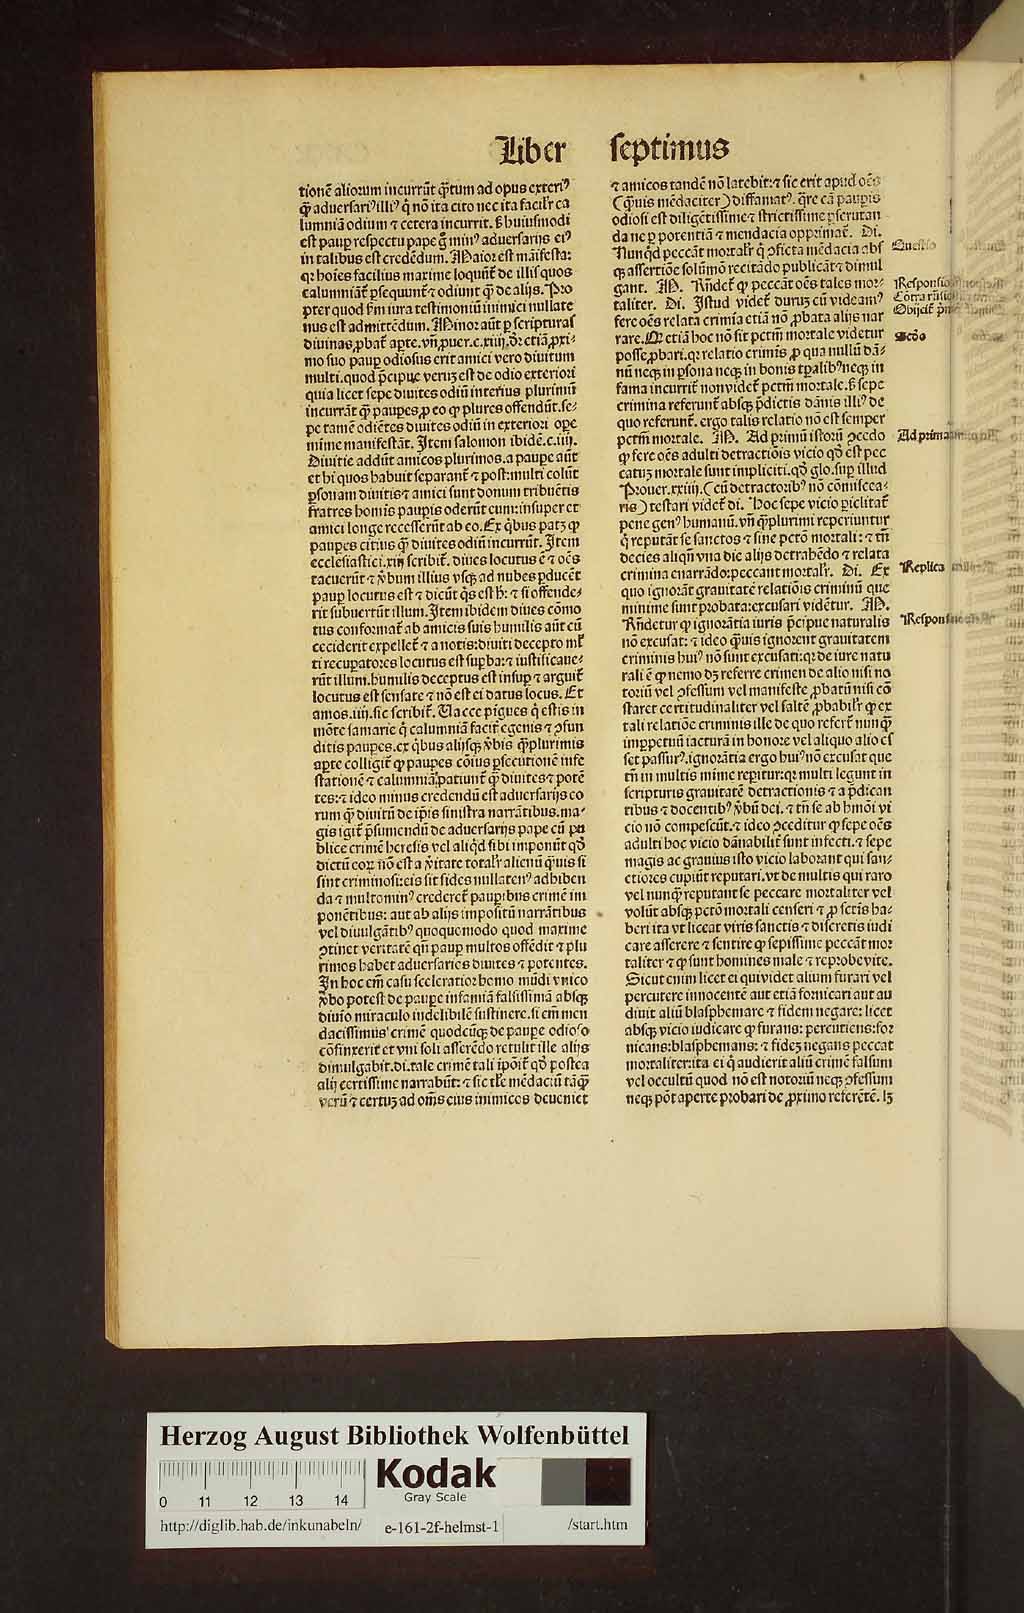 Liber septimus
tionē alioꝝum incurrūt qͣtum ad opus exteriꝰ
qͣ aduersariꝰ illiꝰ q̇ nō ita cito nec ita facilr̄ ca
lumniā odium ⁊ cetera incurrit. ẞ huiusmodi
est paup respectu pape g̊ minꝰ aduersarijs eiꝰ
in talibus est credēdum. Maior est māifesta:
qꝛ hoīes facilius maxime loquūt̄ de illis quos
calumniāt̄ ꝑsequunt̄ ⁊ odiunt qͣ de alijs. Pro
pter quod ẞm iura testimoniū inimici nullate
nus est admittēdum. Minor aūt ꝑ scripturas
diuinas ꝓbat̄ apte. vn̄ ꝓuer. c. xiiij. dꝛ̄ etiā ꝓxi-
mo suo paup odiosus erit amici vero diuitum
multi. quod p̄cipue verū est de odio exteriori
quia licet sepe diuites odiū interius plurimū
incurrāt qͣ paupes, ꝓ eo ꝙ plures offendūt. se-
pe tamē odiētes diuites odiū in exteriori ope
mīme manifestāt. Item salomon ibidē. c. iiij.
Diuitie addūt amicos plurimos. a paupe aūt
et hi quos habuit separant̄ ⁊ post: multi colūt
ꝑsonam diuitis ⁊ amici sunt donum tribuētis
fratres homīs paupis oderūt eum: insuper et
amici longe recesserūt ab eo. Ex qͥbus patꝫ ꝙ
paupes citius qͣ diuites odiū incurrūt. Item
ecclesiastici. xiij scribit̄. diues locutus ē ⁊ oēs
tacuerūt ⁊ v̄bum illius vsqꝫ ad nubes ꝑducēt
paup locutus est ⁊ dicūt qͥs est hͥ: ⁊ si offende-
rit subuertūt illum. Item ibidem diues cōmo
tus conformat̄ ab amicis suis humilis aūt cū
ceciderit expellet̄ ⁊ a notis: diuiti decepto ml̄
ti recuꝑatores locutus est suꝑba: ⁊ iustificaue-
rūt illum. humilis deceptus est insuꝑ ⁊ arguit̄
locutus est sensate ⁊ nō est ei datus locus. Et
amos. iiij. sic scribit̄. Uacce pigues q̄ estis in
mōte samarie q̇ calumniā facit̄ egenis ⁊ ꝯfun
ditis paupes. ex qͥbus alijsqꝫ v̄bis qͣplurimis
aꝑte colligit̄ ꝙ paupes cōius ꝑsecutionē infe
stationē ⁊ calumniā, patiunt̄ qͣ diuites ⁊ potē
tes: ⁊ ideo minus credendū est aduersarijs eo
rum qͣ diuitū de ip̄is sinistra narrātibus. ma-
gis igit̄ p̄sumendū de aduersarijs pape cū pu
blice crimē heresis vel aliqͥd sibi imponūt qd̊
dictū eoꝝ nō est a v̄itate totalr̄ alienū qͣuis si
sint criminosi: eis sit fides nullatenꝰ adhiben
da ⁊ multominꝰ crederet̄ paupibus crimē im
ponētibus: aut ab alijs impositū narrātibus
vel diuulgātibꝰ quoquemodo quod maxime
ꝯtinet veritatē qn̄ paup multos offēdit ⁊ plu
rimos habet aduersarios diuites ⁊ potentes.
In hoc em̄ casu sceleratior homo mūdi vnico
v̄bo potest de paupe infamiā falsissimā absqꝫ
diuīo miraculo indelibilē sustinere. si em̄ men
dacissimus crimē quodcūqꝫ de paupe odioso
cōfinxerit et vni soli asserēdo retulit ille alijs
diuulgabit. di. tale crimē tali ip̄oit̄ qd̊ postea
alij certissime narrabūt: ⁊ sic tl̄e mēdaciū tāqͣ
verū ⁊ certuꝫ ad oms̄ eius inimicos deueniet
⁊ amicos tandē nō latebit: ⁊ sic erit apud oēs
(qͣuis mēdaciter) diffamatꝰ. qͣre cā paupis
odiosi est diligētissime ⁊ strictissime ꝑscrutan
da ne ꝑ potentiā ⁊ mendacia opprimat̄. Di.
Nunqͥd peccāt mortalr̄ q̇ ꝯficta mēdacia abs
qꝫ assertiōe solūmō recitādo publicāt ⁊ diuul
gant. M. Rn̄det̄ ꝙ peccāt oēs tales mor-
taliter. Di. Istud videt̄ duruꝫ cū videamꝰ
fere oēs relata crimīa etiā nō ꝓbata alijs nar
rare. Q etiā hoc nō sit petm̄ mortale videtur
posse, ꝓbari. qꝛ relatio crimīs ꝓ qua nullū dā-
nū neqꝫ in ꝑsona neqꝫ in bonis tꝑalibꝰ neqꝫ in
fama incurrit̄ non videt̄ petm̄ mortale. ẞ sepe
crimina referunt̄ absqꝫ p̄dictis dānis illiꝰ de
quo referunt̄. ergo talis relatio nō est semper
petm̄ mortale. M. Ad primū istoꝝ ꝯcedo
ꝙ fere oēs adulti detractiōis vicio qd̊ est pec
catuꝫ mortale sunt impliciti. qd̊ glo. suꝑ illud
Prouer. xxiiij. (cū detractoribꝰ nō cōmiscea-
ris) testari videt̄ di. Hoc sepe vicio ꝑiclitat̄
pene genꝰ humanū. vn̄ qͣplurimi reperiuntur
q̇ reputāt se sanctos ⁊ sine petō mortali: ⁊ tn̄
decies aliqn̄ vna die alijs detrahēdo ⁊ relata
crimina enarrādo: peccant mortalr̄. Di. Ex
quo ignorāt grauitatē relatiōis criminū que
minime sunt probata: excusari vidētur. M.
Rn̄detur ꝙ ignorātia iuris p̄cipue naturalis
nō excusat: ⁊ ideo qͣuis ignorent grauitatem
criminis huiꝰ nō sunt excusati: qꝛ de iure natu
rali ē ꝙ nemo dꝫ referre crimen de alio nisi no
toriū vel ꝯfessum vel manifeste ꝓbatū nisi cō
staret certitudinaliter vel saltē ꝓbabilr̄ ꝙ ex
tali relatiōe criminis ille de quo refert̄ nunqͣ
imꝑpetuū iacturā in honore vel aliquo alio es
set passurꝰ. ignorātia ergo huiꝰ nō excusat que
tn̄ in multis mīme reꝑitur: qꝛ multi legunt in
scripturis grauitatē detractionis ⁊ a p̄dican
tibus ⁊ docentibꝰ v̄bū dei. ⁊ tn̄ se ab hmōi vi
cio nō compescūt. ⁊ ideo ꝯceditur ꝙ sepe oēs
adulti hoc vicio dānabilit̄ sunt infecti. ⁊ sepe
magis ac grauius isto vicio laborant qui san-
ctiores cupiūt reputari. vt de multis qui raro
vel nunqͣ reputant se peccare mortaliter vel
volūt absqꝫ petō mortali censeri ⁊ ꝓ sctīs ha-
beri ita vt liceat viris sanctis ⁊ discretis iudi
care asserere ⁊ sentire ꝙ sepissime peccāt mor
taliter ⁊ ꝙ sunt homines male ⁊ reprobe vite.
Sicut enim licet ei qui videt alium furari vel
percutere innocentē aut etiā fornicari aut au
diuit aliū blasphemare ⁊ fidem negare: licet
absqꝫ vicio iudicare ꝙ furans: percutiens: for
nicans: blasphemans: ⁊ fideꝫ negans peccat
mortaliter: ita ei q̇ audierit aliū crimē falsum
vel occultū quod nō est notoriū neqꝫ ꝯfessum
neqꝫ pōt aperte probari de ꝓximo referētē. lꝫ
Questio
Responsio
Cōtra
Obijcit̄
Scd̊o
Ad prima
Replica
Responsio
Herzog August Bibliothek Wolfenbüttel
Kodak
Gray Scale
0 11 12 13 14
http://diglib.hab.de/inkunabeln/ e-161-2f-helmst-1 /start.htm